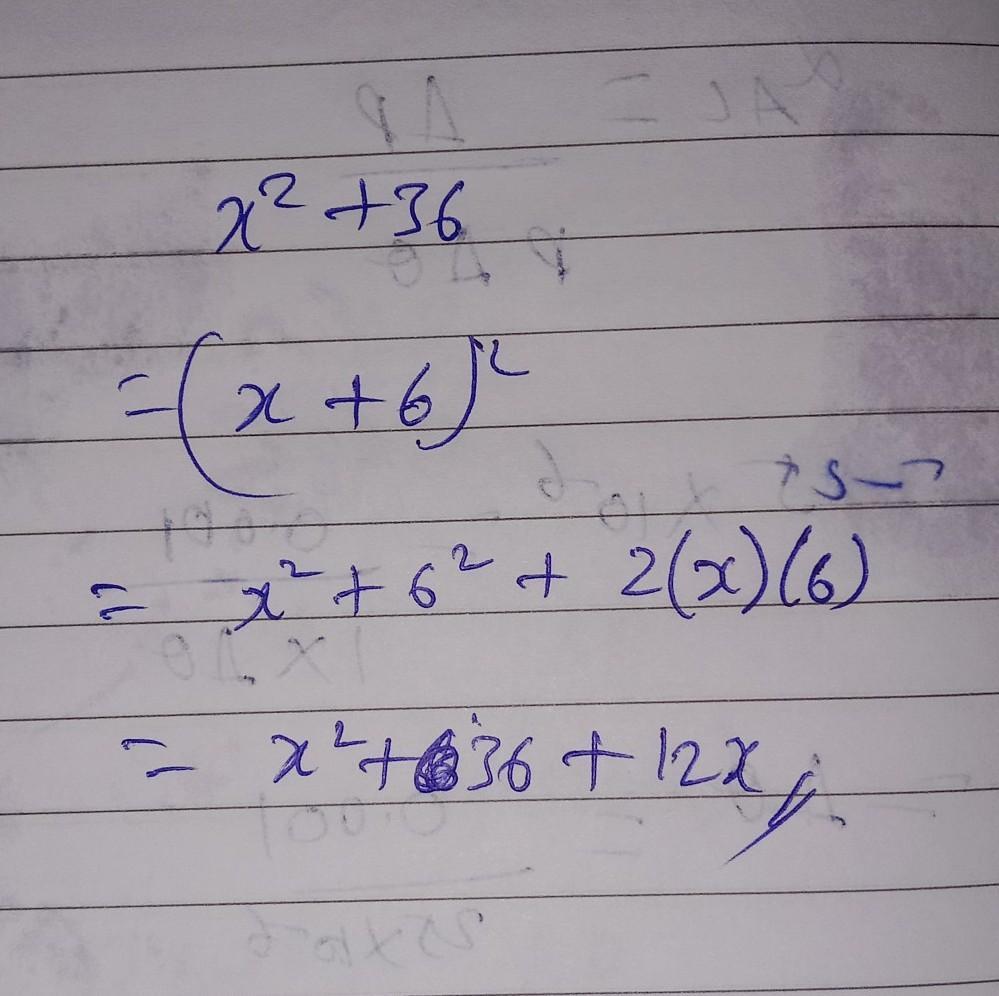 x² + 36
= (x + 6)²
= x² + 6² + 2(x)(6)
= x² + 36 + 12x